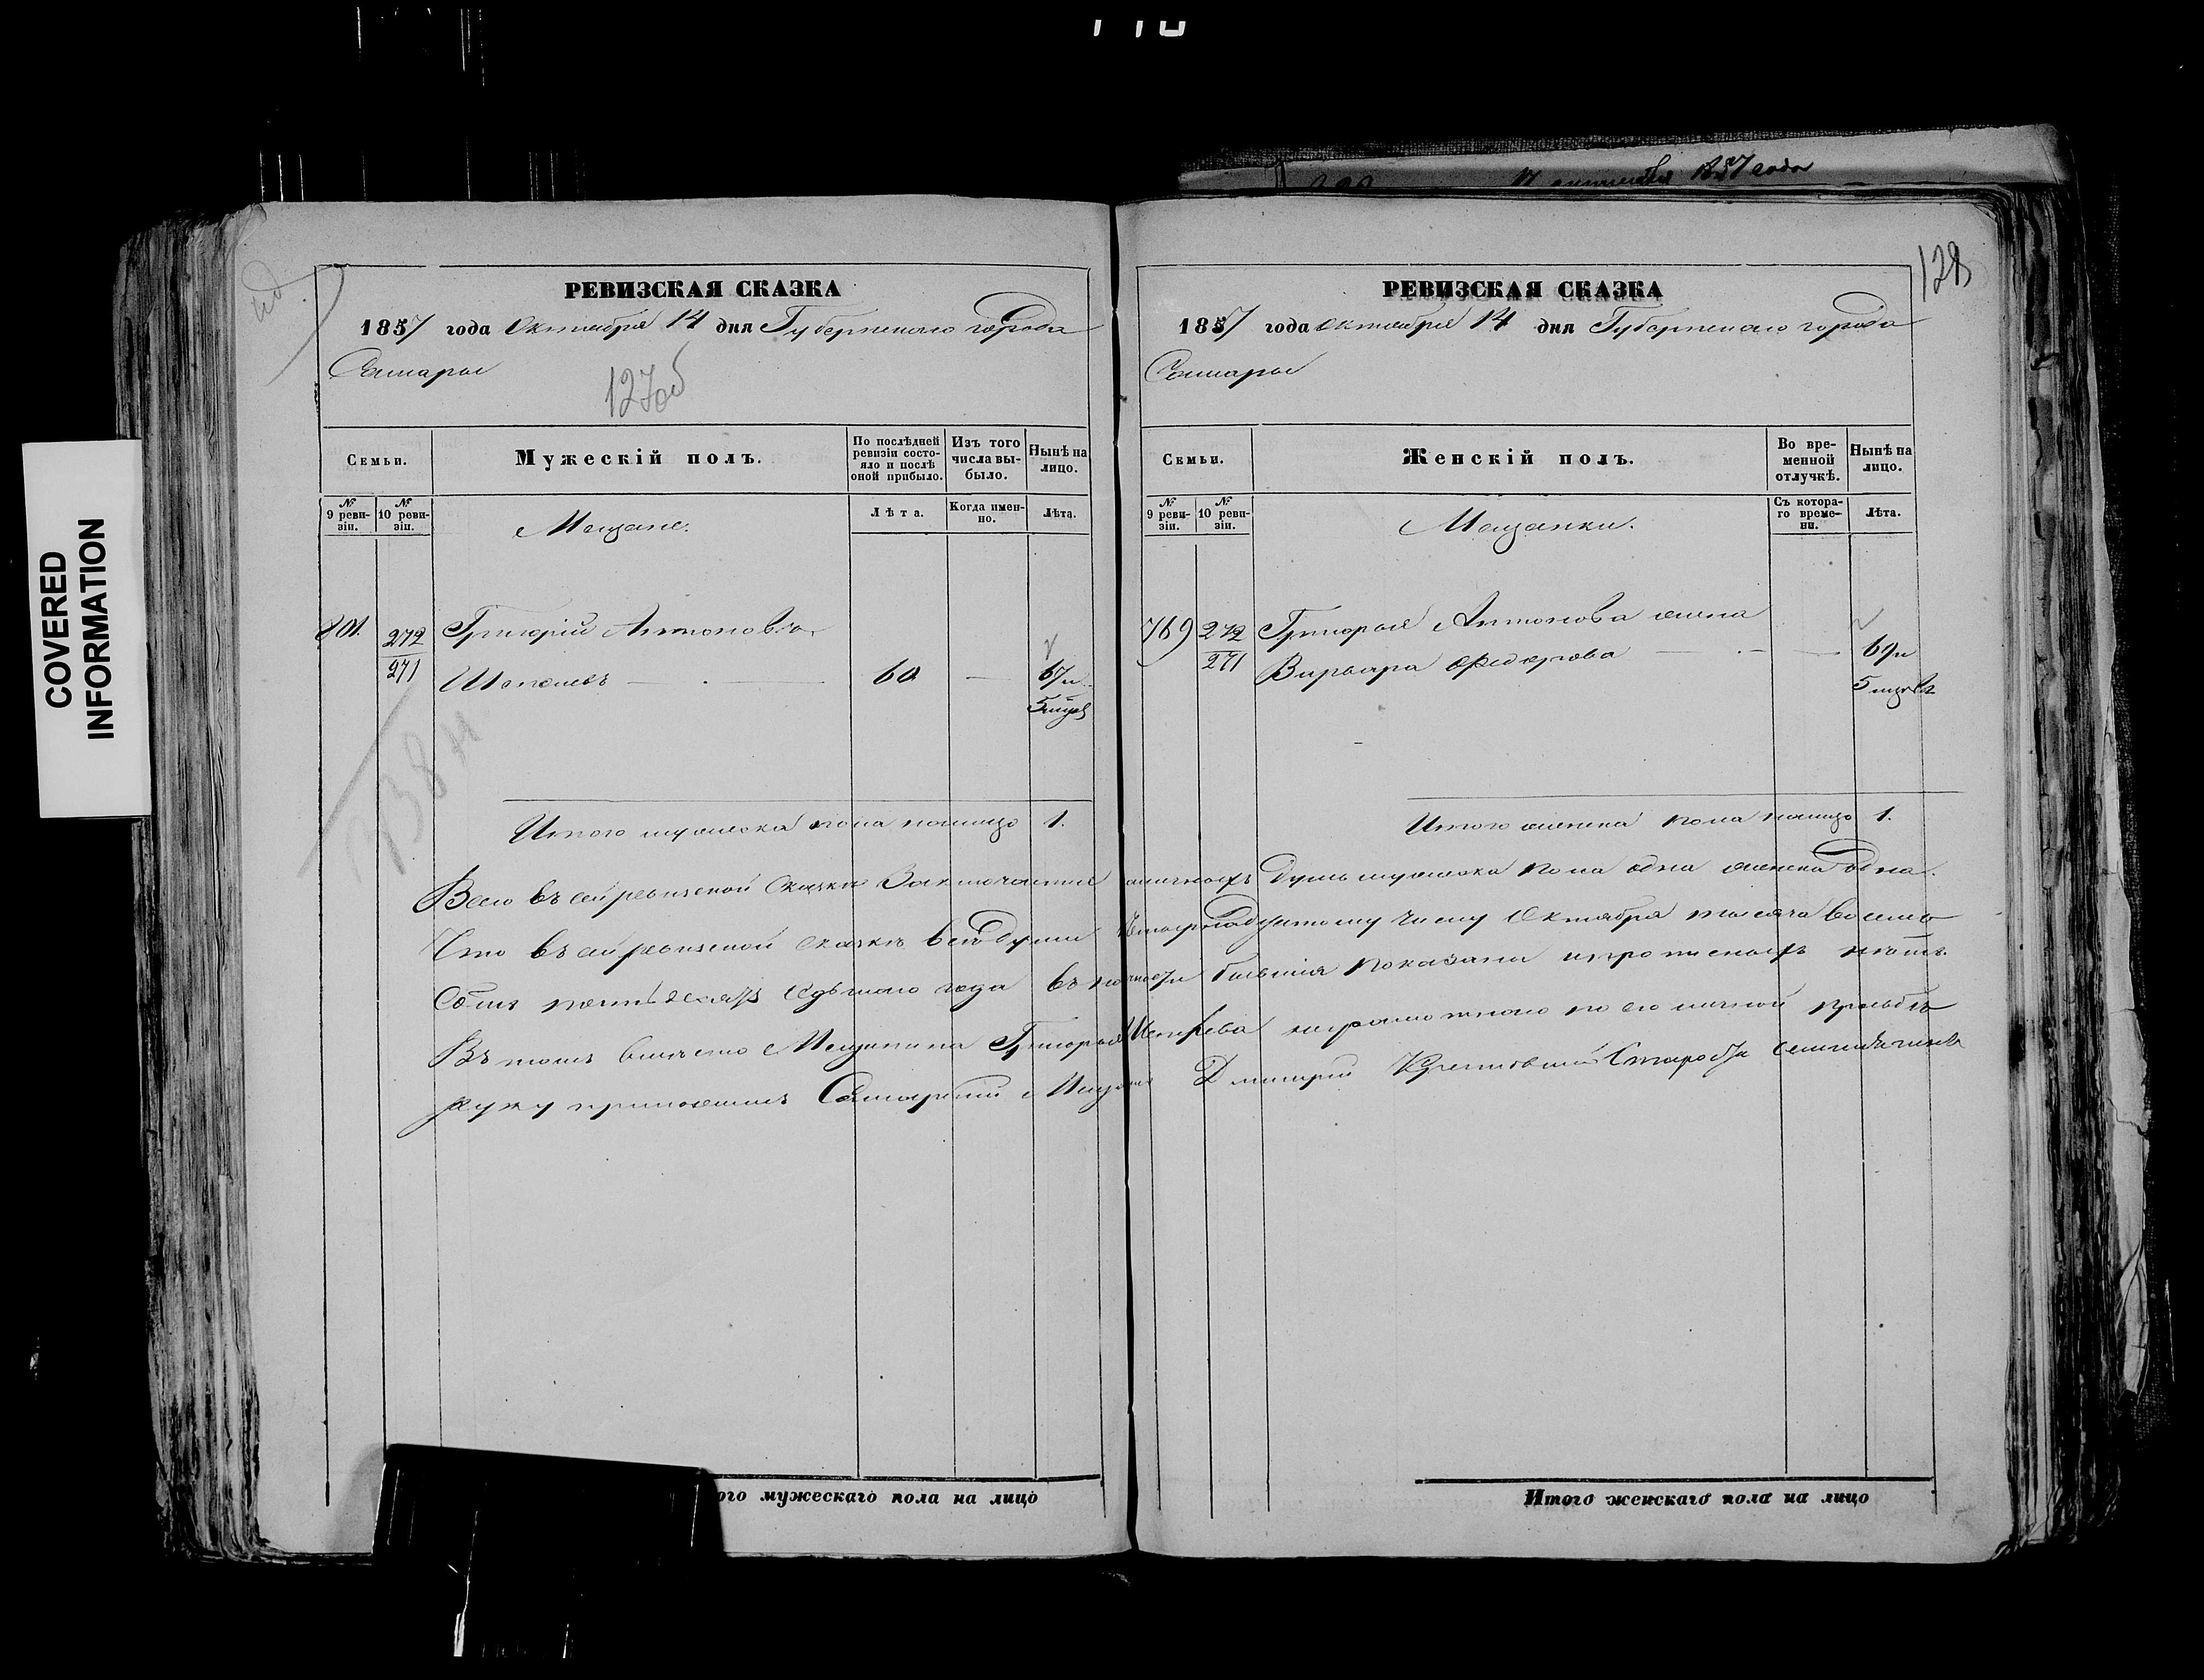 COVERED INFORMATION
1857 года
РЕВИЗСКАЯ СКАЗКА
1857 года Октября 14 дня Губернскаго города
Самары
127об
Семьи.
Мужескій полъ.
По послѣдней ревизіи состояло и послѣ оной прибыло.
Изъ того числа выбыло.
Нынѣ на лицо.
№ 9 ревизіи.
№ 10 ревизіи.
Мещане.
Лѣта.
Когда именно.
Лѣта.
801.
272
271
Григорій Антоновъ
60
67
Итого мужеска пола налицо 1.
128
РЕВИЗСКАЯ СКАЗКА
1857 года Октября 14 дня Губернскаго города
Самары
Семьи.
Женскій полъ.
Во временной отлучкѣ.
Нынѣ на лицо.
№ 9 ревизіи.
№ 10 ревизіи.
Мещанки.
Съ котораго времени.
Лѣта.
769
272
271
Григорья Антонова жена
Варвара Федорова
5 мцовъ
Итого женска пола налицо 1.
Всего въ сей ревизской сказкѣ заключается наличныхъ душъ мужеска пола одна женска одна.
Что въ сей ревизской сказкѣ всѣ души къ четырнадцатому числу Октября тысяча восемь
сотъ пятьдесятъ седьмаго года въ наличности бывшія показаны и прописныхъ нѣтъ.
Въ томъ вмѣсто Мещанина Григорья неграмотнаго по его личной прозьбѣ
руку приложилъ Самарскій Мещанинъ Дмитрій
ого мужескаго пола на лицо
Итого женскаго пола на лицо